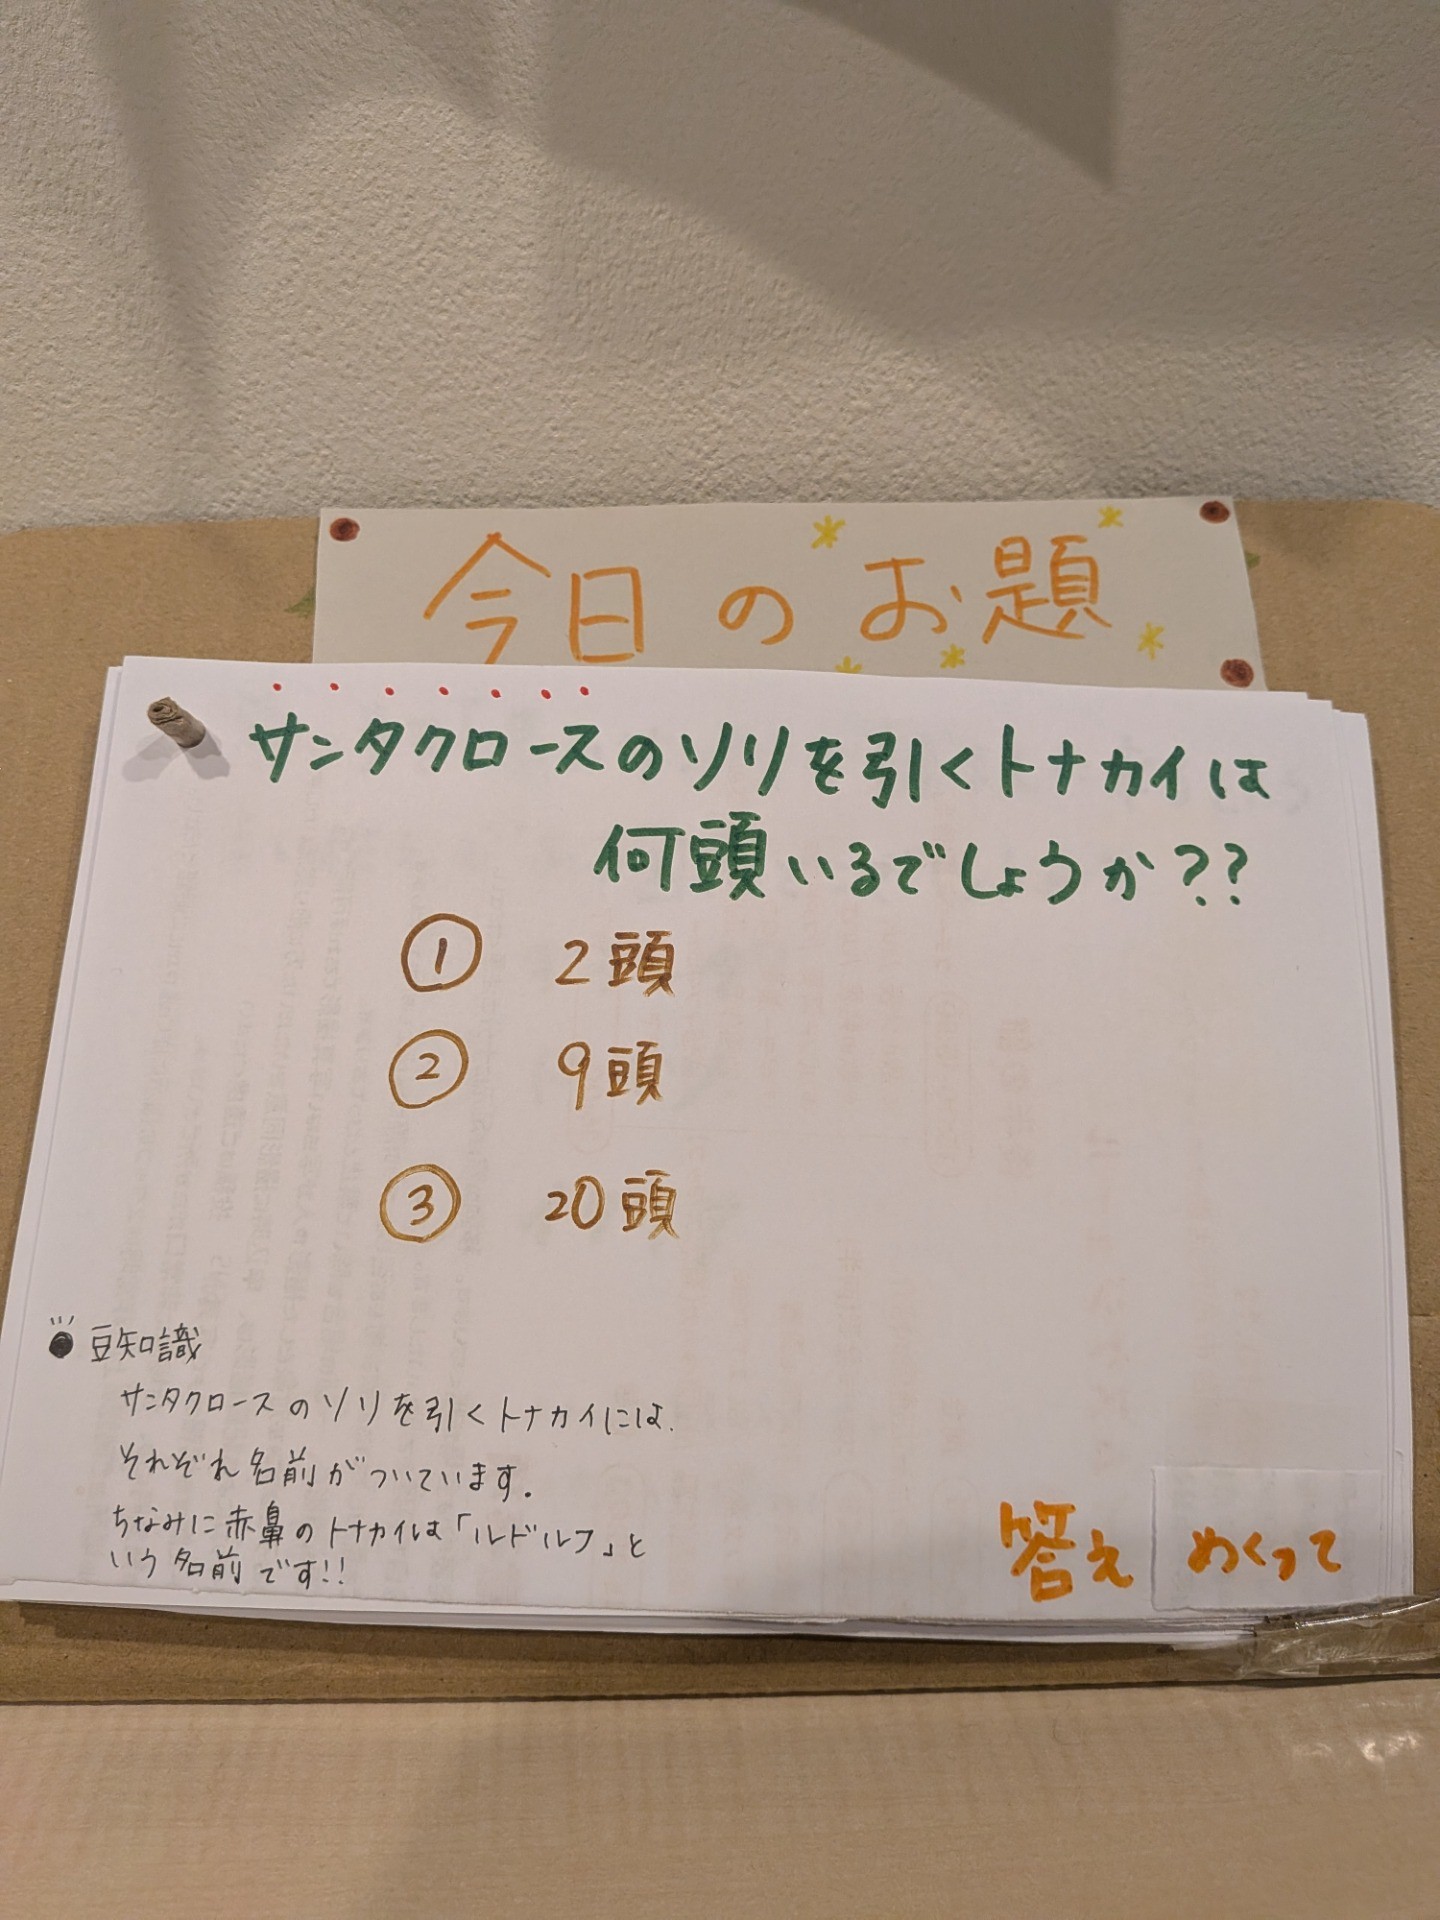 今日のお題
サンタクロースのソリを引くトナカイは
何頭いるでしょうか??
① 2頭
② 9頭
③ 20頭
豆知識
サンタクロースのソリを引くトナカイには、
それぞれ名前がついています。
ちなみに赤鼻のトナカイは「ルドルフ」と
いう名前です!!
答え めくって